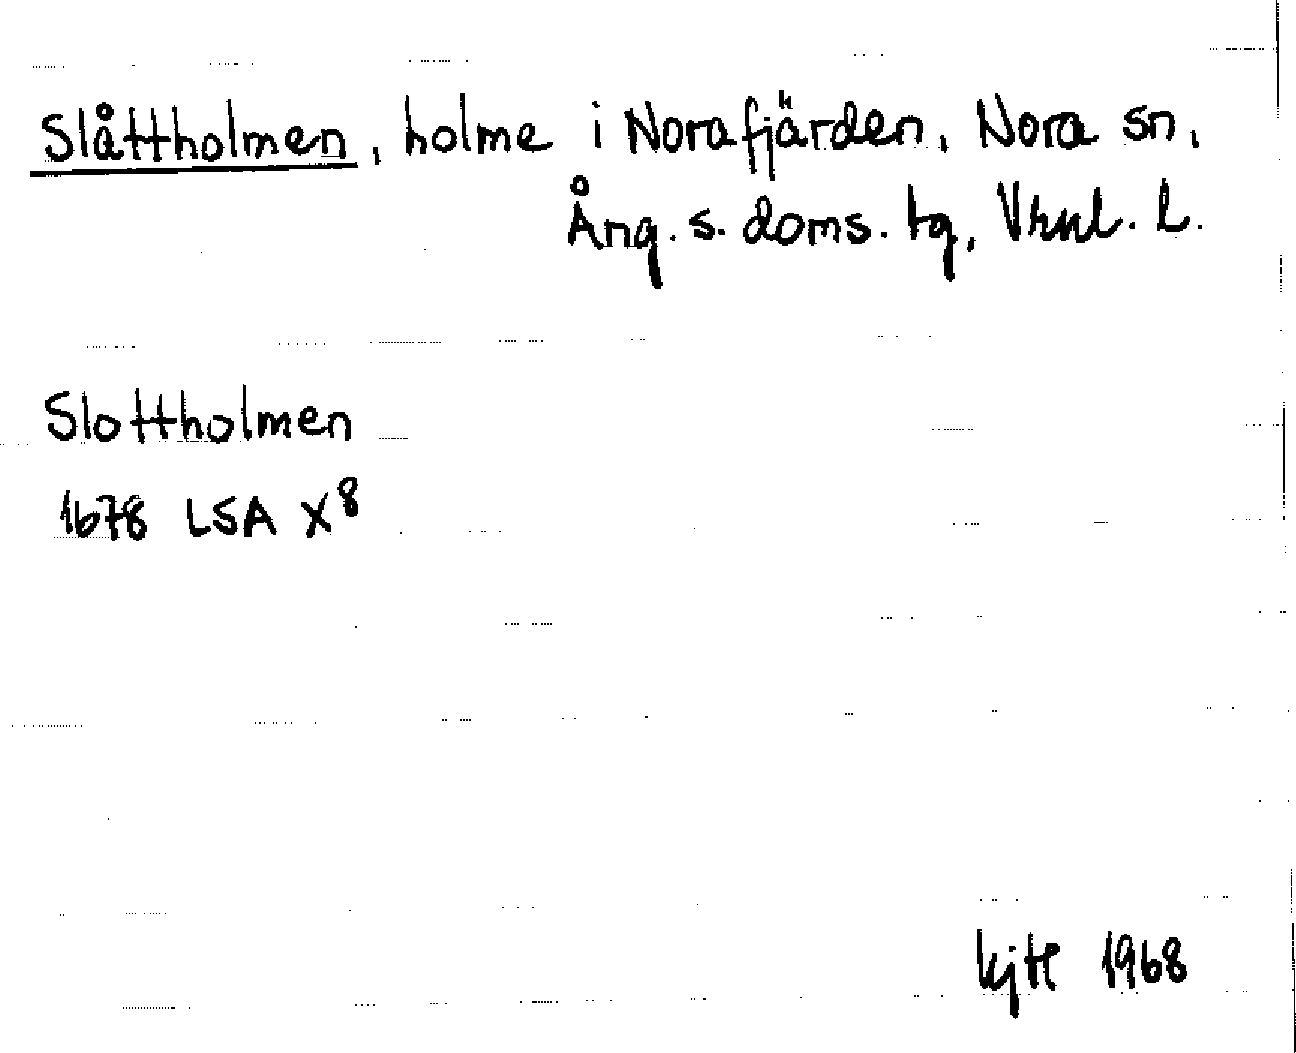 Slåttholmen, holme i Norafjärden, Nora sn,
Ång. s. doms. tg, Vrnl. l.
Slottholmen
1678 LSA X8
1968